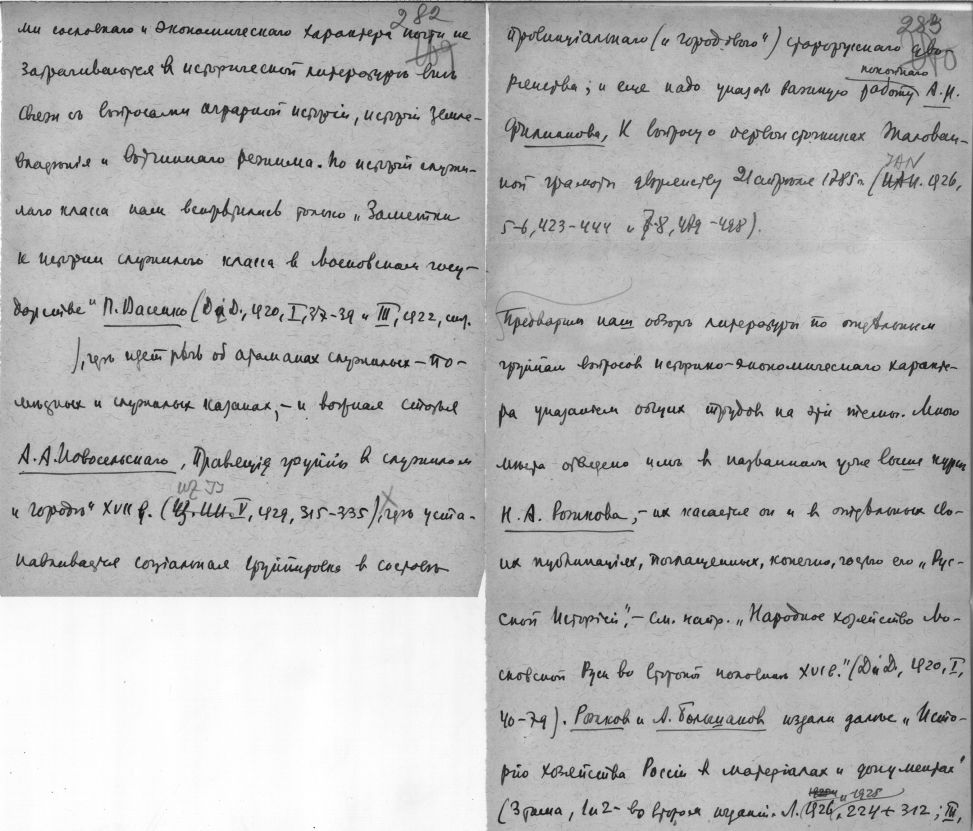 282
ми сословнаго и экономическаго характера почти не
затрачиваются в исторической литературѣ внѣ
связи съ вопросами аграрной исторіи, исторіи земле-
владѣнія и вотчиннаго режима. По исторіи служи-
лаго класса нам встрѣтились только „Заметки
к исторіи служилого класса в Московском госу-
дарстве" П. Васенко (ДиД., 1920, I, 37-39 и III, 1922, стр.
), гдѣ идет рѣчь об атаманах служилых – по-
мѣстных и служилых казаках, – и воѣная статья
А. А. Новосельскаго, Правящія группы в служилом
UZ II
и „городѣ" XVII в. (Уз. ИИ. V, 1929, 315-335), гдѣ уста-
навливается соціальная группировка в составѣ
283
провинціальнаго (и „городового") старорусскаго дво-
рянства; и еще надо указать важную работу
покойнаго
А. Н.
Филиппова, К вопросу о первоисточниках Жалован-
JAN
ной грамоты дворянству 21 апрѣля 1785 г. (ИАН. 1926,
5-6, 423-444 и 7-8, 479-498).
Предварим наш обзоръ литературы по отдѣльным
группам вопросов историко-экономическаго характе-
ра указаніем общих трудов на эти темы. Много
мѣста отведено имъ в названном уже выше курсѣ
Н. А. Рожкова, – их касается он и в отдѣльных сво-
их публикаціях, поглащенных, конечно, частью его „Рус-
ской Исторіей", – см. напр. „Народное хозяйство Мо-
сковской Руси во второй половинѣ XVI в." (ДиД., 1920, I,
40-79). Рожков и А. Большаков издали далѣе „Исто-
рію хозяйства Россіи в матеріалах и документах"
и 1925
(3 тома, 1 и 2 – во втором изданіи. Л. 1926, 224 + 312; III,